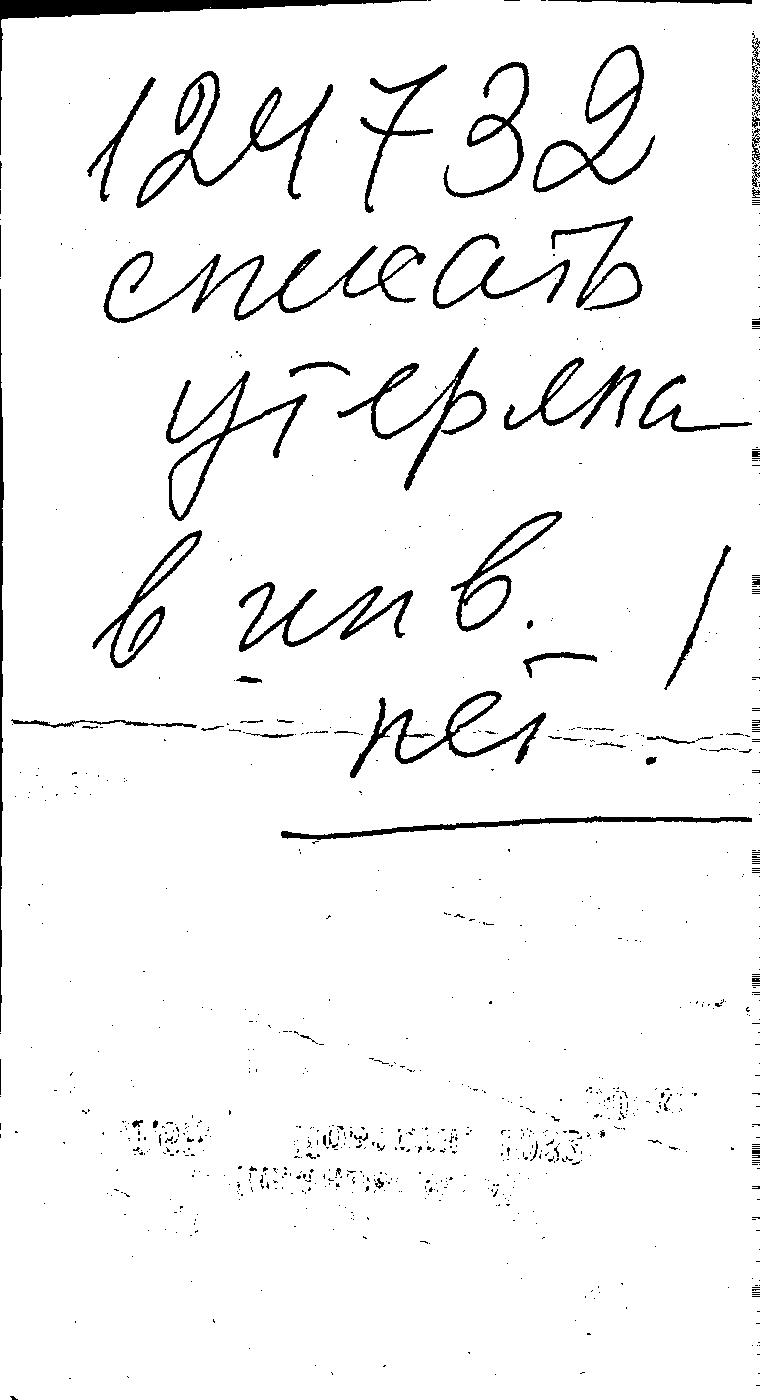 124732
списать
утеряна
в инв.
нет!